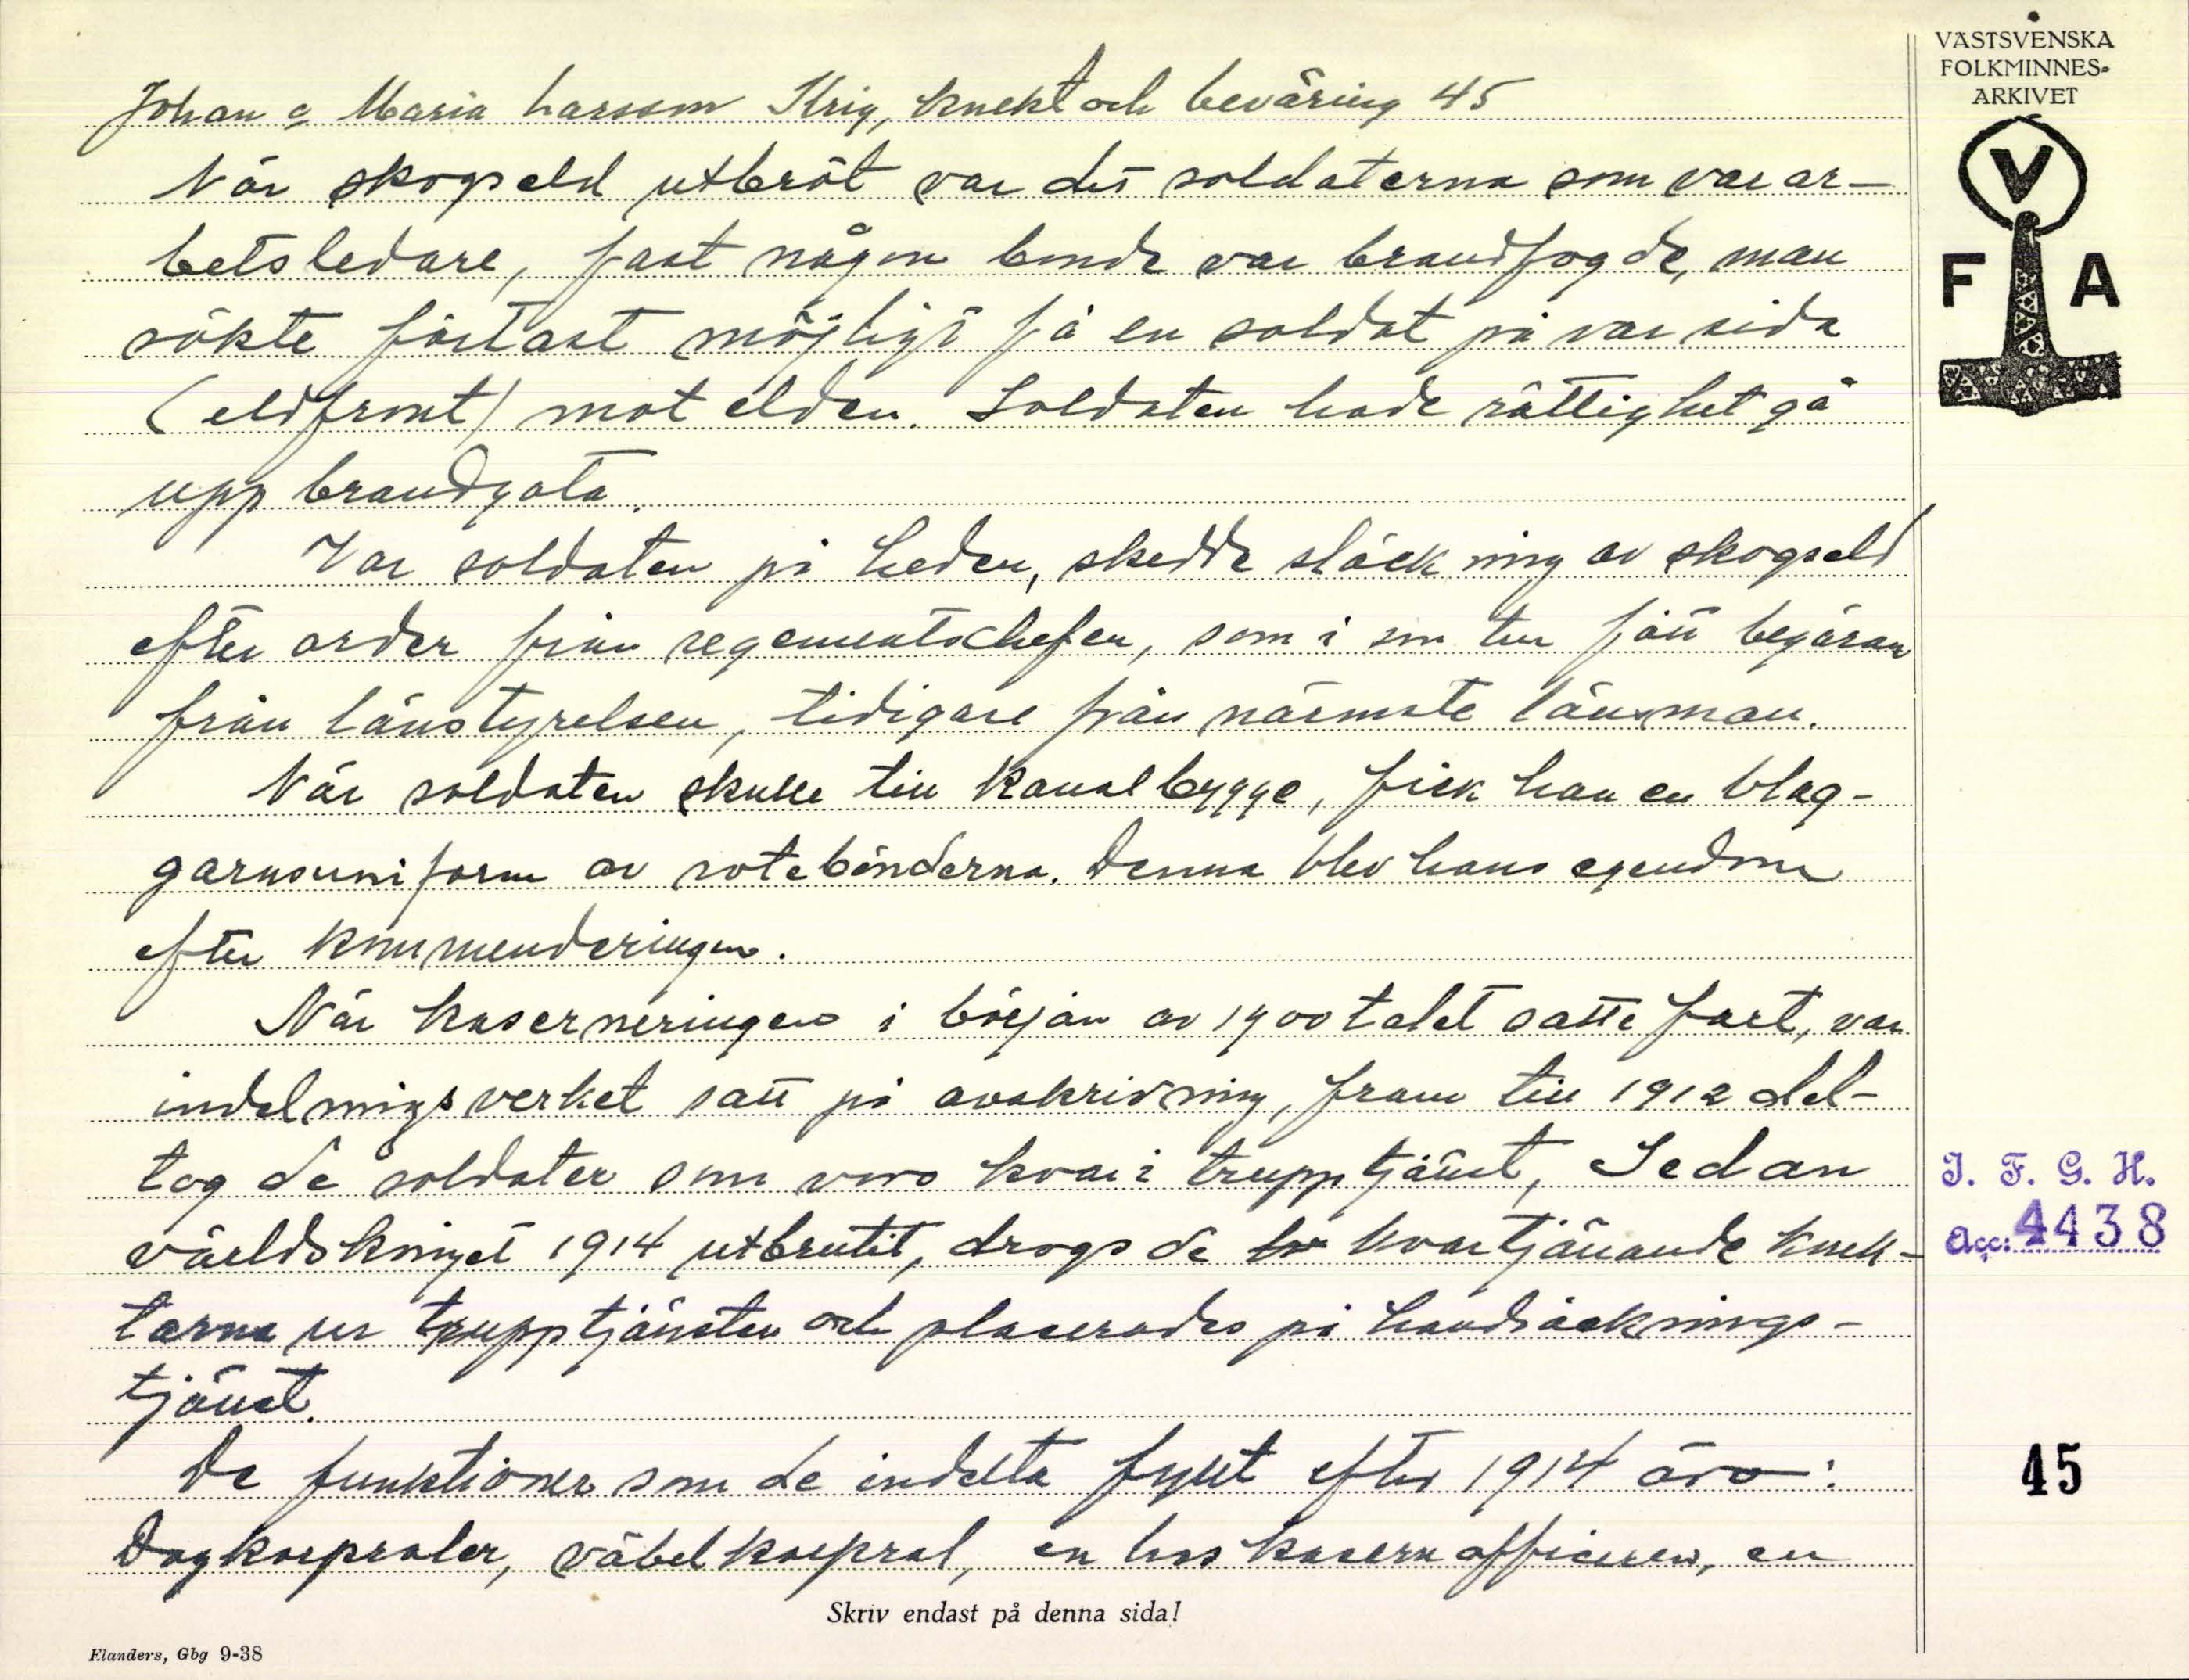 VÄSTSVENSKA
FOLKMINNES-
ARKIVET
V
F A
Johan o Maria Larsson Krig, knekt och beväring 45
När skogseld utbröt var det soldaterna som var ar-
betsledare, fast någon bonde var brandfogde, man
sökte fortast möjligt få en soldat på var sida
(eldfront) mot elden. Soldaten hade rättighet gå
upp brandgata.
Var soldaten på heden, skedde släckning av skogseld
efter order från regementschefen, som i sin tur fått begäran
från länstyrelsen, tidigare från närmste länsman.
När soldaten skulle till kanalbygge, fick han en blag-
garnsuniform av rotebönderna. Denna blev hans egendom
efter kommenderingen.
När kaserneringen i början av 1900talet satte fart, var
indelningsverket satt på avskrivning, fram till 1912 del-
tog de soldater som voro kvar i trupptjänst, Sedan
världskriget 1914 utbrutit, drogs de kvartjänande knek-
tarna ur trupptjänsten och placerades på handräcknings-
tjänst.
De funktioner som de indelta fyllt efter 1914 äro:
Dagkorpraler, väbelkorpral, en hos kasernofficeren, en
I. F. G. H.
Acc: 4438
45
Skriv endast på denna sida!
Elanders, Gbg 9-38